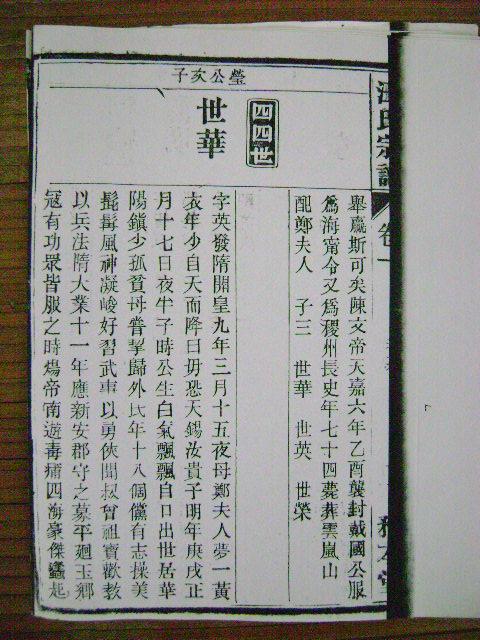 汪氏宗譜
卷一
舉贏斯可矣陳文帝天嘉六年乙酉襲封戴國公服
爲海甯令又爲稷州長史年七十四薨葬雲嵐山
配鄭夫人 子三 世華 世英 世榮
四四世
瑩公次子
世華
字英發隋開皇九年三月十五夜母鄭夫人夢一黃
衣年少自天而降曰毋恐天錫汝貴子明年庚戌正
月十七日夜半子時公生白氣飄飄自日出世居華
陽鎮少孤貧母嘗挈歸外氏年十八倜儻有志操美
髭髯風神凝峻好習武事以勇俠聞叔曾祖寶歡教
以兵法隋大業十一年應新安郡守之募平廻玉鄉
寇有功眾皆服之時煬帝南遊毒痡四海豪傑蠭起